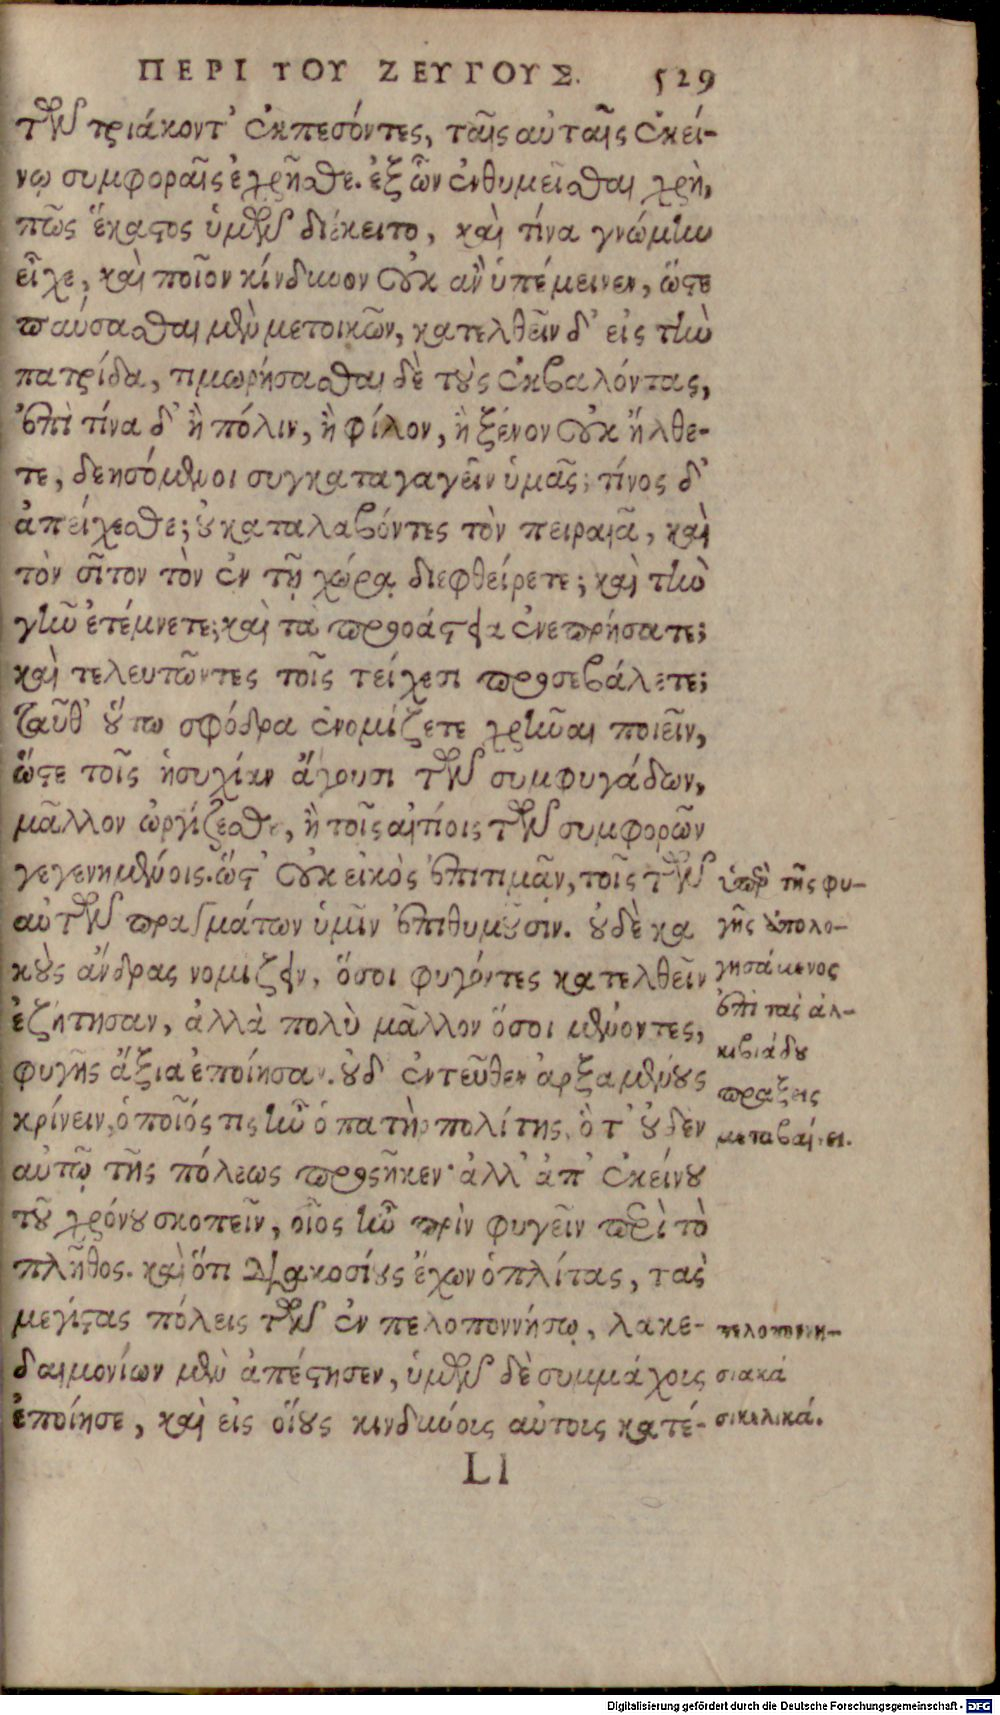 ΠΕΡΙ ΤΟΥ ΖΕΥΓΟΥΣ. 529
τῶν τριάκοντ' ἐκπεσόντες, ταῖς αὐταῖς ἐκεί-
νῳ συμφοραῖς ἐχρῆσθε. ἐξ ὧν ἐνθυμεῖσθαι χρὴ,
πῶς ἕκαστος ὑμῶν διέκειτο, καὶ τίνα γνώμην
εἶχε, καὶ ποῖον κίνδυνον οὐκ ἂν ὑπέμεινεν, ὥστε
παύσασθαι μὲν μετοικῶν, κατελθεῖν δ' εἰς τὴν
πατρίδα, τιμωρήσασθαι δὲ τοὺς ἐκβαλόντας,
ἐπὶ τίνα δ' ἢ πόλιν, ἢ φίλον, ἢ ξένον οὐκ ἤλθε-
τε, δεησόμενοι συγκαταγαγεῖν ὑμᾶς; τίνος δ'
ἀπείχεσθε; οὐ καταλαβόντες τὸν πειραιᾶ, καὶ
τὸν σῖτον τὸν ἐν τῇ χώρᾳ διεφθείρετε; καὶ τὴν
γῆν ἐτέμνετε; καὶ τὰ προάστεια ἐνεπρήσατε;
καὶ τελευτῶντες τοῖς τείχεσι προσεβάλετε;
Ταῦθ' οὕτω σφόδρα ἐνομίζετε χρῆναι ποιεῖν,
ὥστε τοῖς ἡσυχίαν ἄγουσι τῶν συμφυγάδων,
μᾶλλον ὠργίζεσθε, ἢ τοῖς αἰτίοις τῶν συμφορῶν
γεγενημένοις. ὥστ' οὐκ εἰκὸς ἐπιτιμᾶν, τοῖς τῶν
αὐτῶν πραγμάτων ὑμῖν ἐπιθυμοῦσιν. οὐδὲ κα
κοὺς ἄνδρας νομίζειν, ὅσοι φυγόντες κατελθεῖν
ἐζήτησαν, ἀλλὰ πολὺ μᾶλλον ὅσοι μένοντες,
φυγῆς ἄξια ἐποίησαν. οὐδ' ἐντεῦθεν ἀρξαμένους
κρίνειν, ὁποῖός τις ἦν ὁ πατὴρ πολίτης, ὅτ' οὐδὲν
αὐτῷ τῆς πόλεως προσῆκεν· ἀλλ' ἀπ' ἐκείνου
τοῦ χρόνου σκοπεῖν, οἷος ἦν πρὶν φυγεῖν περὶ τὸ
πλῆθος. καὶ ὅτι διακοσίους ἔχων ὁπλίτας, τὰς
μεγίστας πόλεις τῶν ἐν πελοποννήσῳ, λακε-
δαιμονίων μὲν ἀπέστησεν, ὑμῶν δὲ συμμάχοις
ἐποίησε, καὶ εἰς οἵους κινδύνοις αὐτοις κατέ-
Ll
ὑπὲρ τῆς φυ-
γῆς ἀπολο-
γησάμενος
ἐπὶ τὰς ἀλ-
κιβιάδου
πράξεις
μεταβαίνει.
πελοποννη-
σιακά
σικελικά.
Digitalisierung gefördert durch die Deutsche Forschungsgemeinschaft - DFG